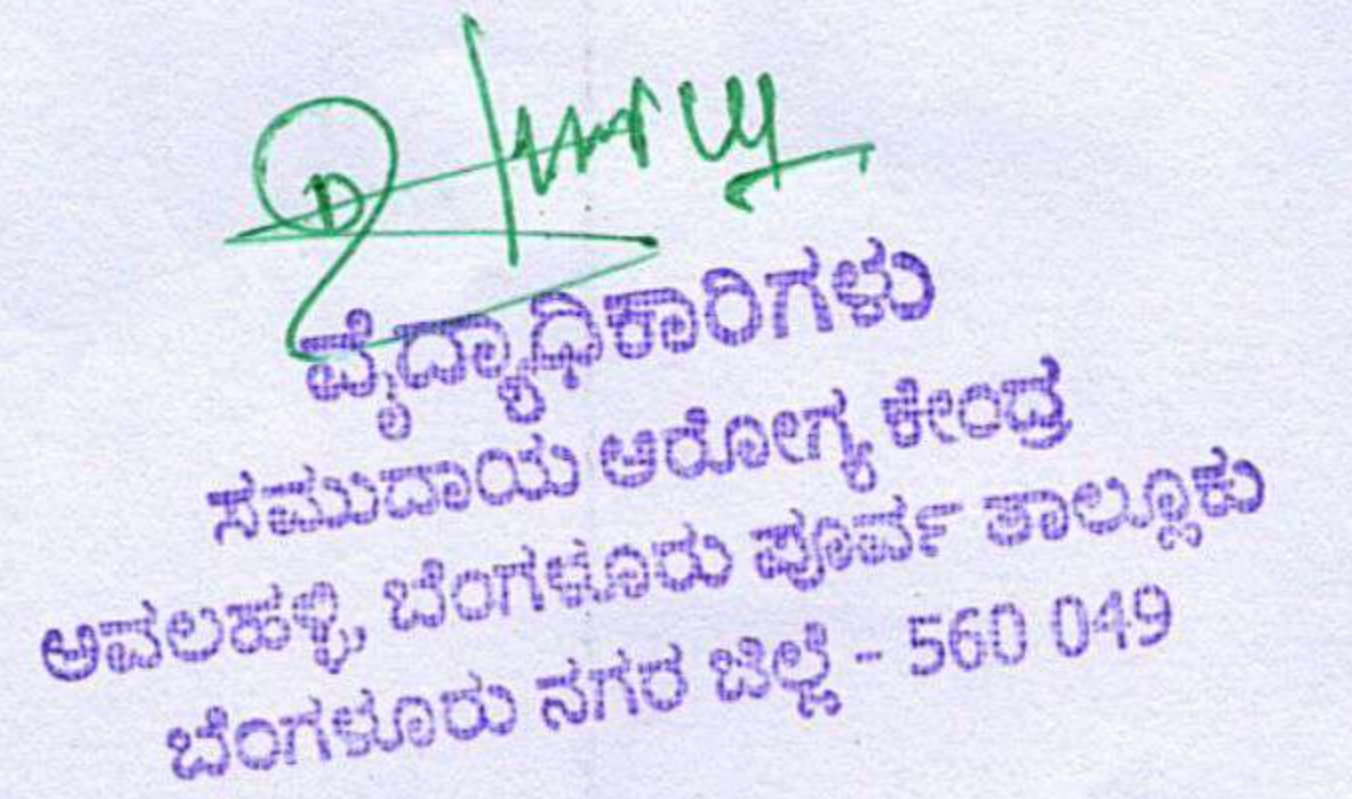 ವೈದ್ಯಾಧಿಕಾರಿಗಳು
ಸಮುದಾಯ ಆರೋಗ್ಯ ಕೇಂದ್ರ
ಆವಲಹಳ್ಳಿ, ಬೆಂಗಳೂರು ಪೂರ್ವ ತಾಲ್ಲೂಕು
ಬೆಂಗಳೂರು ನಗರ ಜಿಲ್ಲೆ - 560 049